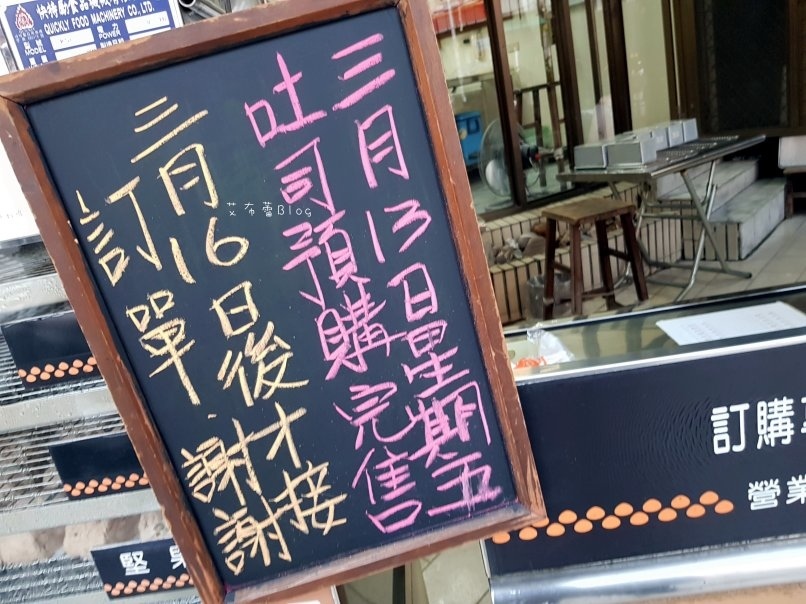 三月13日星期五
吐司預購完售
三月16日後才接
訂單．謝謝
艾布蕾Blog
QUICKLY FOOD MACHINERY CO., LTD.
MODEL
POWER
訂購
營業
堅果